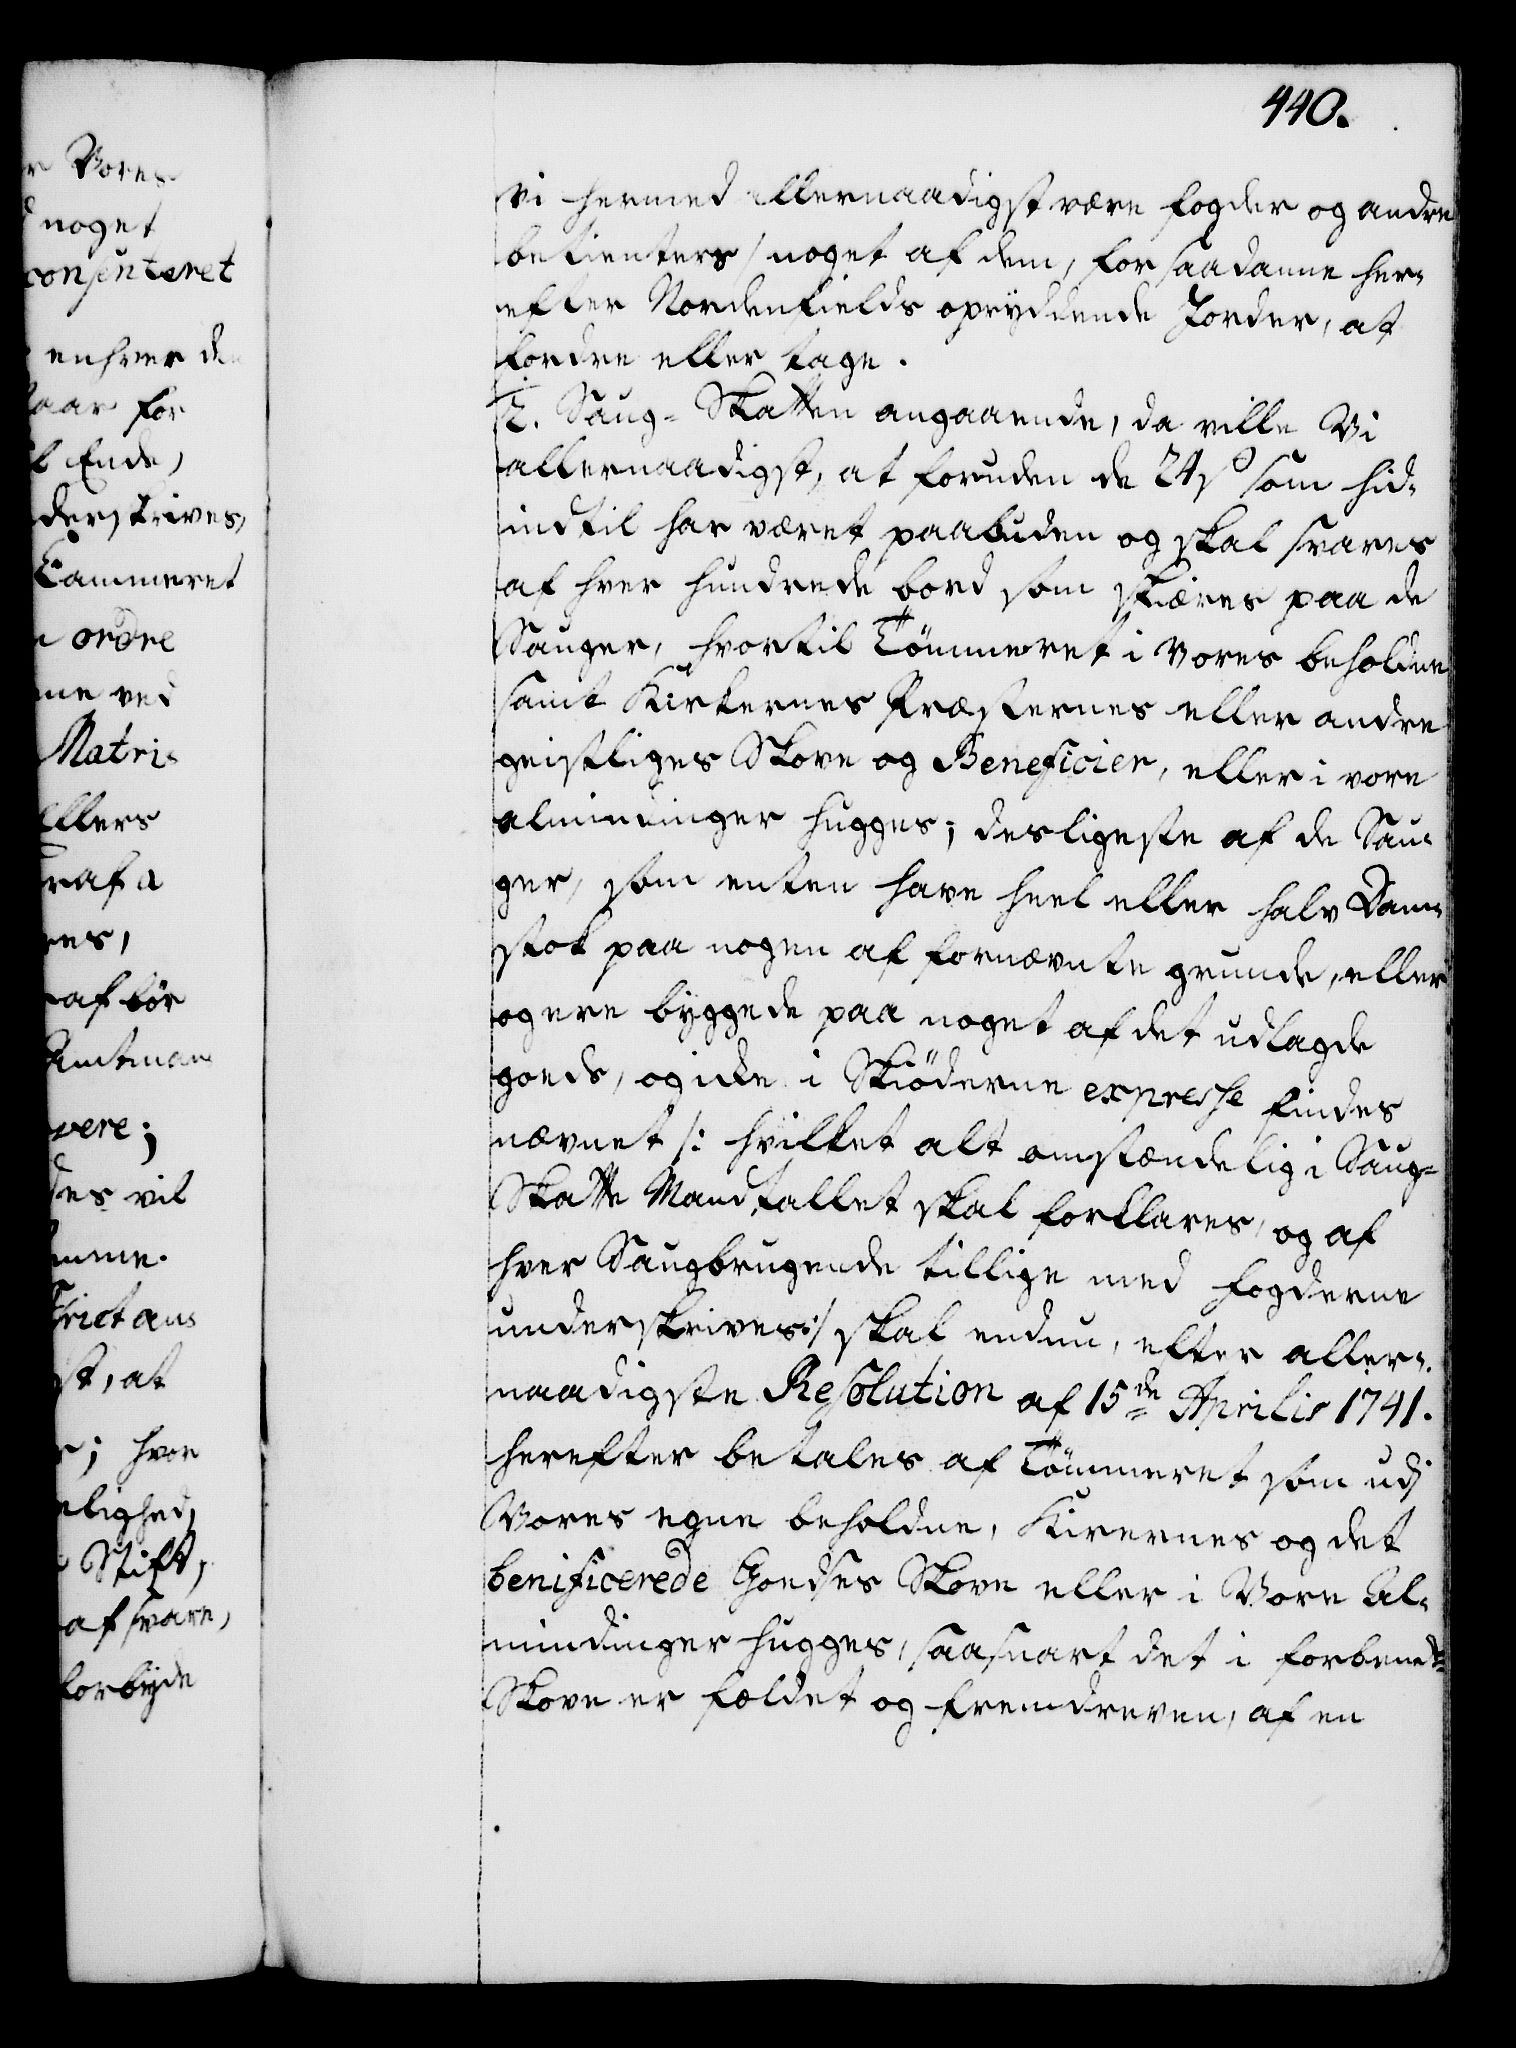 440.
r Vores
d noget
consenteret
enhver de
aar for
l Ende,
derskrives,
Cammeret
n ordre
ne ved
Matri-
ellers
raf a
res,
af bör
Amtman
vere;
des vil
mme.
trict ans
st, at
r; hvor
elighed,
Stift,
af svare,
forbyde
Vi hermed allernaadigst vore fogder og andre
betienters / noget af dem, for saadanne her-
efter Nordenfields opryddende Jorder, at
fordre eller tage.
12. Saug-Skatten angaaende, da ville Vi
allernaadigst, at foruden de 24 s som hid-
indtil har været paabuden og skal svares
af hver hundrede bord som skiæres paa de
Sauger, hvortil Tömmeret i Vores beholdne
samt Kirkernes Præsternes eller andre
geistliges Skove og Beneficier, eller i vore
almindinger hugges; desligeste af de Sau-
ger, som enten have heel eller halv Dam-
stok paa nogen af fornævnte grunde, eller
og ere byggede paa noget af det udlagde
goeds, og icke i Skiöderne expresse findes
nævnet /: hvilket alt omstændelig i Saug-
Skatte Mandtallet skal forklares, og af
hver Saugbrugende tillige med fogderne
underskrives :/ skal endnu, efter aller-
naadigste Resolution af 15de Aprilis 1741.
herefter betales af Tömmeret som udj
Vores egne beholdne, Kirernes og det
benificerede Goedses Skove eller i Vore Al-
mindinger hugges, saasnart det i forbemte
Skove er fældet og fremdreven, af en